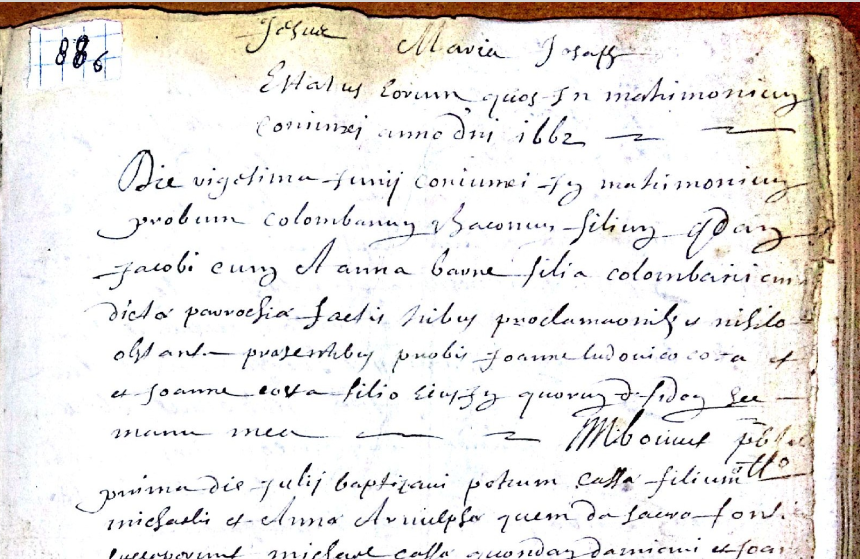 886
Jesus Maria Joseph
Status eorum quos In matrimonium
coniunxi anno dni 1662
Die vigesima Junij coniunxi In matrimonium
probum colombanum filium qdam
Jacobi cum Anna barne filia colombani
dicta parrochia factis tribus proclamaonibus nihilo
obstante presentibus probis Joanne ludovico costa et
et Joanne costa filio quorum
manu mea
prima die Julij baptizavi petrum cassa filium
michaelis et Anna Arnulpha quem de sacro fonte
susceperunt michael cassa quondam damiani et Joan